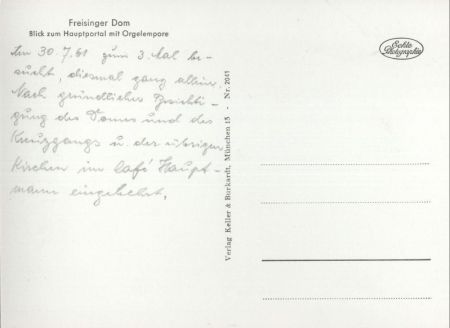 Freisinger Dom
Blick zum Hauptportal mit Orgelempore
Echte Photographie
Am 30.7.61 zum 3. Mal be-
sucht, diesmal ganz allein.
Nach gründlicher Besichti-
gung des Domes und des
Kreuzgangs u. der übrigen
Kirchen im Café Haupt-
mann eingekehrt.
Verlag Keller & Burkardt, München 15 - Nr. 2041